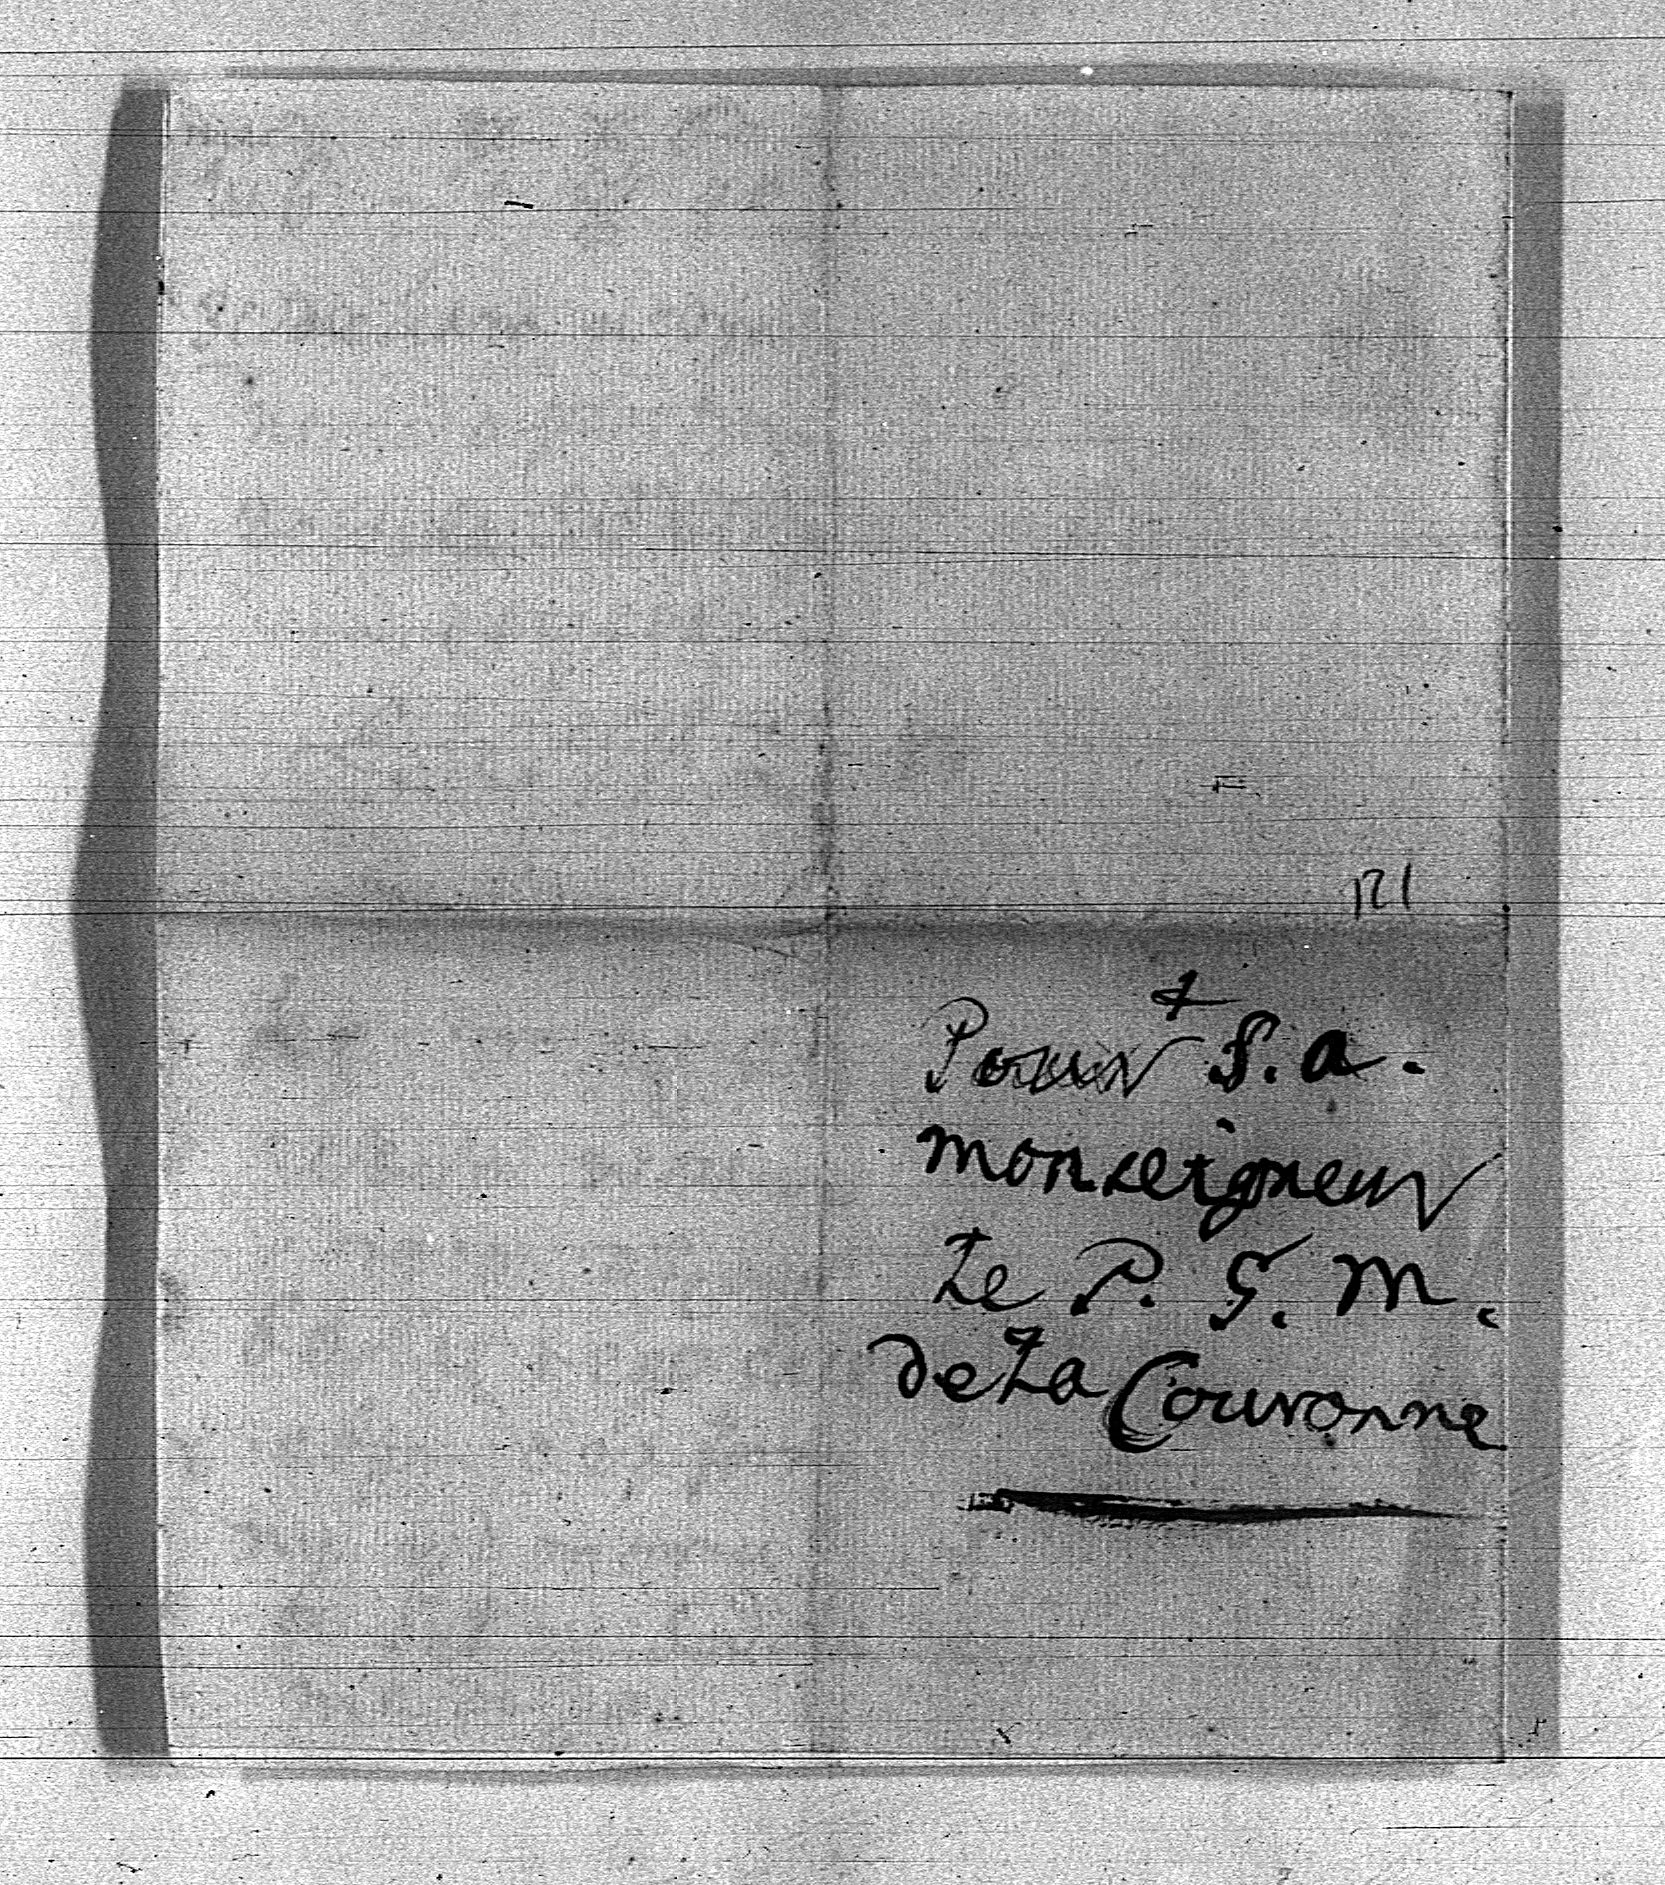 121
+
Pour S. A.
monseigneur
Le P. G. M.
de La Couronne